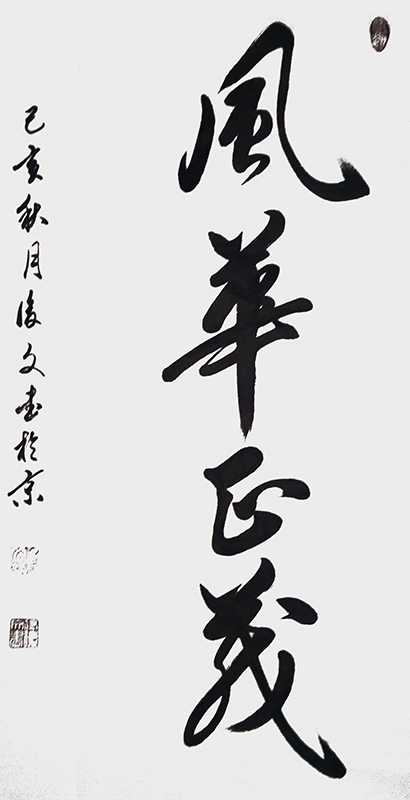 風華正茂
己亥秋月俊文書於京